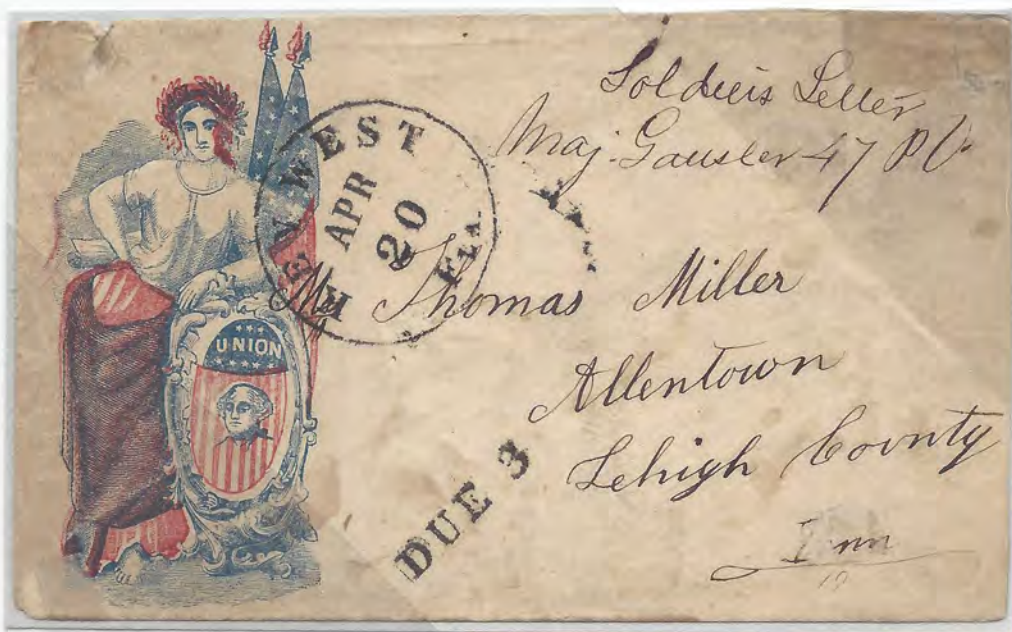 Soldiers Letter
Maj. Gausler 47 P V
KEY WEST
APR
20
FLA.
Mr Thomas Miller
Allentown
Lehigh County
Penn
UNION
DUE 3